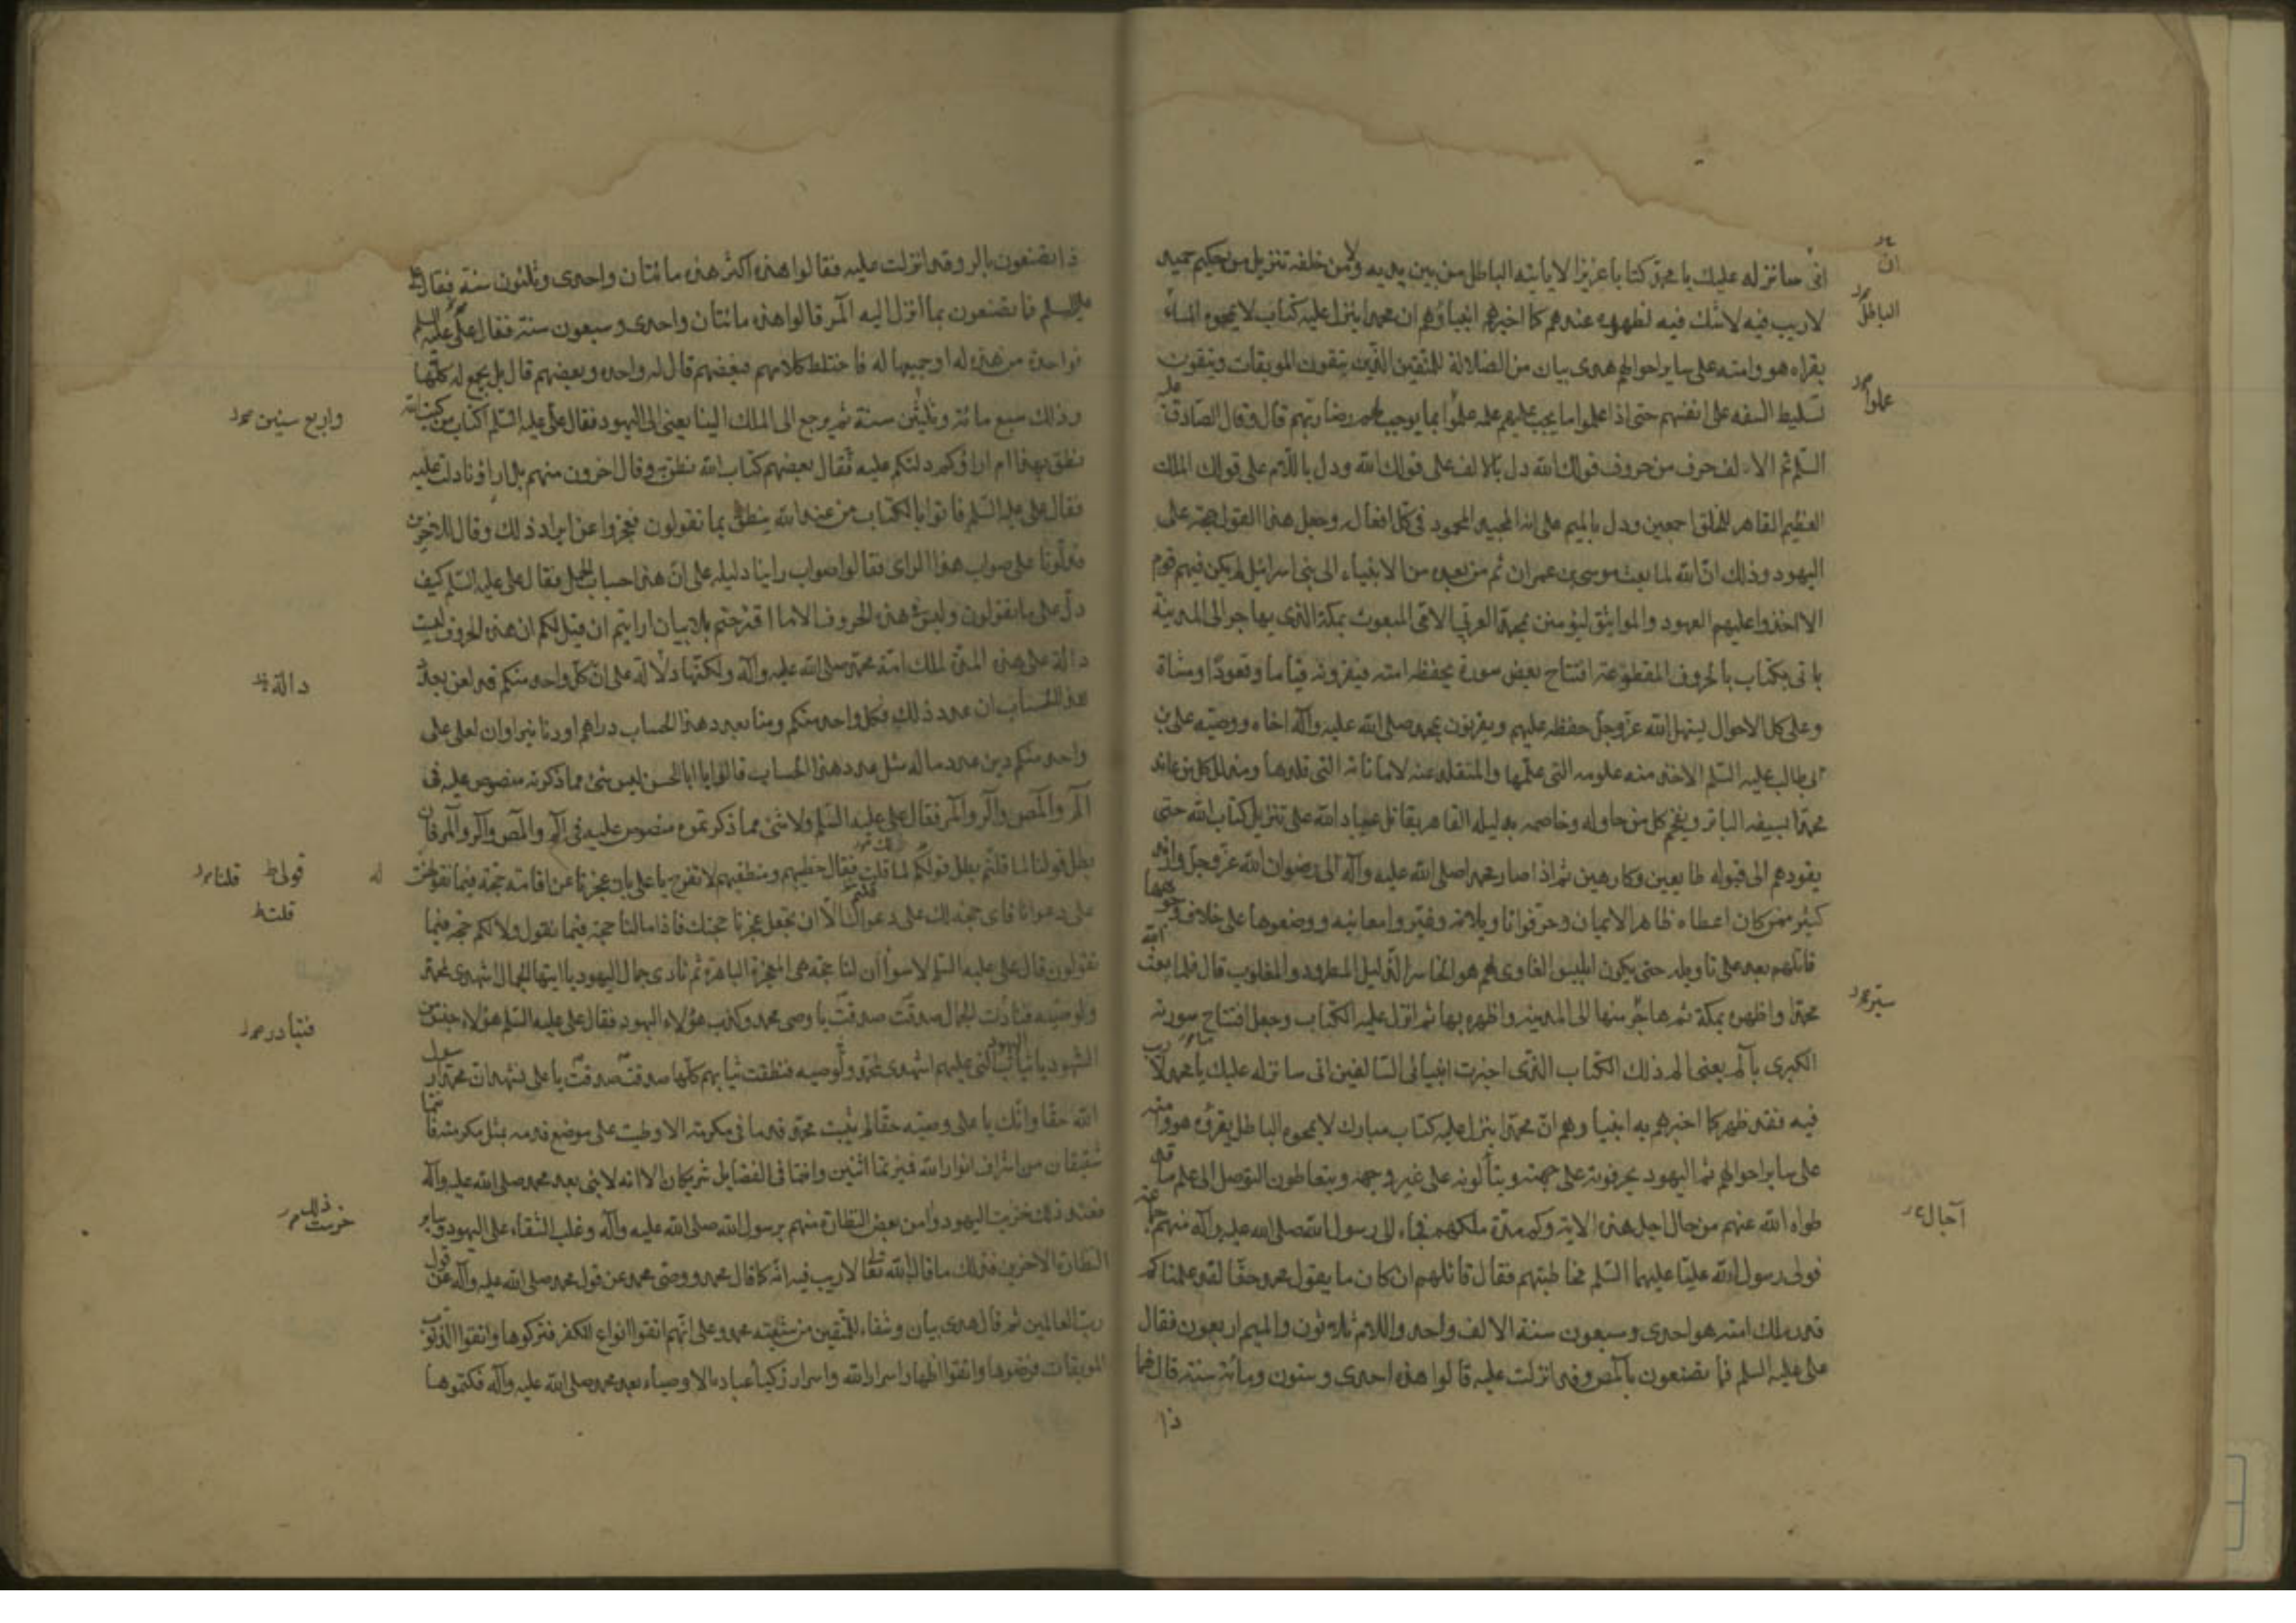 انی سانزله علیك یا محمد کتابا عزیزا لا یاتیه الباطل من بین یدیه ولا من خلفه تنزیل من حکیم حمید
لا ریب فیه لاشك فیه لظهوره عندهم کما اخبرهم انبیاؤهم ان محمدا ینزل علیه کتاب لا یمحوه الماء
یقراه هو وامته علی سایر احوالهم هدی بیان من الضلالة للمتقین الذین یتقون الموبقات ویتقون
تسلیط السفه علی انفسهم حتی اذا علموا ما یجب علیهم علمه عملوا بما یوجب لهم رضا ربهم قال وقال الصادق علیه
السلم ثم الالف حرف من حروف قولك الله دل بالالف علی قولك الله ودل باللام علی قولك الملك
العظیم القاهر للخلق اجمعین ودل بالمیم علی انه المجید المحمود فی کل افعاله وجعل هذا القول حجة علی
الیهود وذلك ان الله لما بعث موسی بن عمران ثم من بعده من الانبیاء الی بنی اسرائیل لم یکن فیهم قوم
الا اخذوا علیهم العهود والمواثیق لیؤمنن بمحمد العربی الامی المبعوث بمکة الذی یهاجر الی المدینة
یاتی بکتاب بالحروف المقطوعة افتتاح بعض سوره یحفظه امته فیقرونه قیاما وقعودا ومشاة
وعلی کل الاحوال یسهل الله عز وجل حفظه علیهم ویقرنون بمحمد صلی الله علیه وآله اخاه ووصیه علی بن
ابی طالب علیه السلم الاخذ منه علومه التی علمها والمتقلد عنه لاماناته التی قلدها ومذلل کل من عاند
محمدا بسیفه الباتر ویفحم کل من حاوله وخاصمه بدلیله القاهر یقاتل عباد الله علی تنزیل کتاب الله حتی
یقودهم الی قبوله طایعین وکارهین ثم اذا صار محمد صلی الله علیه وآله الی رضوان الله عز وجل وارتد
کثیر ممن کان اعطاه ظاهر الایمان وحرفوا تاویلاته وغیروا معانیه ووضعوها علی خلاف وجوهها
قاتلهم بعد علی تاویله حتی یکون ابلیس الغاوی لهم هو الخاسر الذلیل المطرود والمغلوب قال فلما بعث الله
محمدا واظهره بمکة ثم هاجر منها الی المدینة واظهره بها ثم انزل علیه الکتاب وجعل افتتاح سورته
الکبری بالم یعنی الم ذلك الکتاب الذی اخبرت انبیائی السالفین انی سانزله علیك یا محمد لا ریب
فیه فقد ظهر کما اخبرهم به انبیاؤهم ان محمدا ینزل علیه کتاب مبارك لا یمحوه الباطل یقرؤه هو وامته
علی سایر احوالهم ثم الیهود یحرفونه علی جهته ویتاولونه علی غیر وجهه ویتعاطون التوصل الی علم ما قد
طواه الله عنهم من حال اجل هذه الامة وکم مدة ملکهم فجاء الی رسول الله صلی الله علیه وآله منهم جماعة
فولی رسول الله علیا علیهما السلم مخاطبتهم فقال قائلهم ان کان ما یقول محمد حقا لقد علمنا کم
قدر ملك امته هو احدی وسبعون سنة الالف واحد واللام ثلاثون والمیم اربعون فقال
علی علیه السلم فما تصنعون بالمص وقد انزلت علیه قالوا هذه احدی وستون ومائة سنة قال فما
ذا
ان
الباطل
عملوا
ستیر
آجال
ذا تصنعون بالر وقد انزلت علیه فقالوا هذه اکثر هذه مائتان واحدی وثلثون سنة فقال علی
علیه السلم فما تصنعون بما انزل الیه المر قالوا هذه مائتان واحدی وسبعون سنة فقال علی علیه السلم
فواحدة من هذه له او جمیعها له فاختلط کلامهم فبعضهم قال له واحدة وبعضهم قال بل یجمع له کلها
وذلك سبع مائة وثلثین سنة ثم یرجع الی الملك الینا یعنی الی الیهود فقال علی علیه السلم اکتاب من کتب الله
نطق بهذا ام اراؤکم دلتکم علیه فقال بعضهم کتاب الله نطق به وقال اخرون منهم بل اراؤنا دلت علیه
فقال علی علیه السلم فاتوا بالکتاب من عند الله ینطق بما تقولون فعجزوا عن ایراد ذلك وقال للاخرین
فدلونا علی صواب هذا الرای فقالوا صواب راینا دلیله علی ان هذا حساب الجمل فقال علی علیه السلم کیف
دل علی ما تقولون ولیس فی هذه الحروف الا ما اقترحتم بلا بیان ارایتم ان قیل لکم ان هذه الحروف لیست
دالة علی هذه المدة لملك امة محمد صلی الله علیه وآله ولکنها دلالة علی ان کل واحد منکم قد لعن بعدد
هذا الحساب ان عدد ذلك فکل واحد منکم ومنا بعدد هذا الحساب دراهم او دنانیر او ان لعلی علی
واحد منکم دین عدد ماله مثل عدد هذا الحساب قالوا یا ابا الحسن لیس شیء مما ذکرته منصوص علیه فی
الم والمص والر والمر فقال علی علیه السلم ولا شیء مما ذکرتموه منصوص علیه فی الم والمص والر والمر فان
بطل قولنا لما قلتم بطل قولکم لما قلت فقال خطیبهم ومنطقهم لا تفرح یا علی بان عجزنا عن اقامة حجة فیما نقول
علی دعوانا فای حجة لك علی دعواك الا ان تجعل عجزنا حجتك فاذا ما لنا حجة فیما نقول ولا لکم حجة فیما
تقولون قال علی علیه السلم لا سواء ان لنا حجة هی المعجزة الباهرة ثم نادی جمال الیهود یا ایتها الجمال اشهدی لمحمد
ولوصیه فنادت الجمال صدقت صدقت یا وصی محمد وکذب هؤلاء الیهود فقال علی علیه السلم هؤلاء جنس من
الشهود یا ثیاب الیهود التی علیهم اشهدی لمحمد ولوصیه فنطقت ثیابهم کلها صدقت صدقت یا علی نشهد ان محمدا رسول
الله حقا وانك یا علی وصیه حقا لم یثبت محمد قدما فی مکرمة الا وطیت علی موضع قدمه بمثل مکرمته فانتما
شقیقان من اشراف انوار الله فمیزتما اثنین وانتما فی الفضایل شریکان الا انه لا نبی بعد محمد صلی الله علیه وآله
فعند ذلك خزیت الیهود وامن بعض النظارة منهم برسول الله صلی الله علیه وآله وغلب الشقاء علی الیهود وسایر
النظارة الاخرین فذلك ما قال الله تعا لا ریب فیه انه کما قال محمد ووصی محمد عن قول محمد صلی الله علیه وآله عن قول
رب العالمین ثم قال هدی بیان وشفاء للمتقین من شیعة محمد وعلی انهم اتقوا انواع الکفر فترکوها واتقوا الذنوب
الموبقات فرفضوها واتقوا اظهار اسرار الله واسرار ازکیاء عباده الاوصیاء بعد محمد صلی الله علیه وآله فکتموها
واربع سنین
دالة
له
قولی
قلنا
قلت
فتبادر
ذلك
خرست